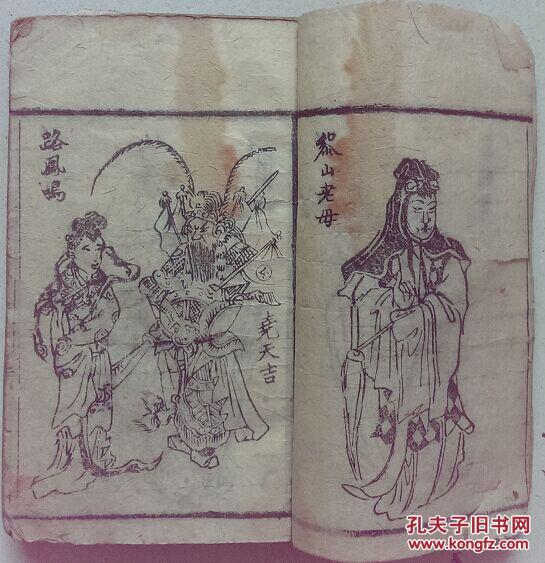 黎山老母
堯天吉
路鳳鳴
孔夫子旧书网
www.kongfz.com